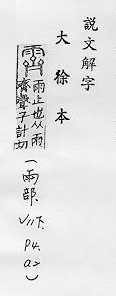 說文解字
大徐本
霽
雨止也从雨
齊聲子計切
(雨部. V11下. P4. a2)